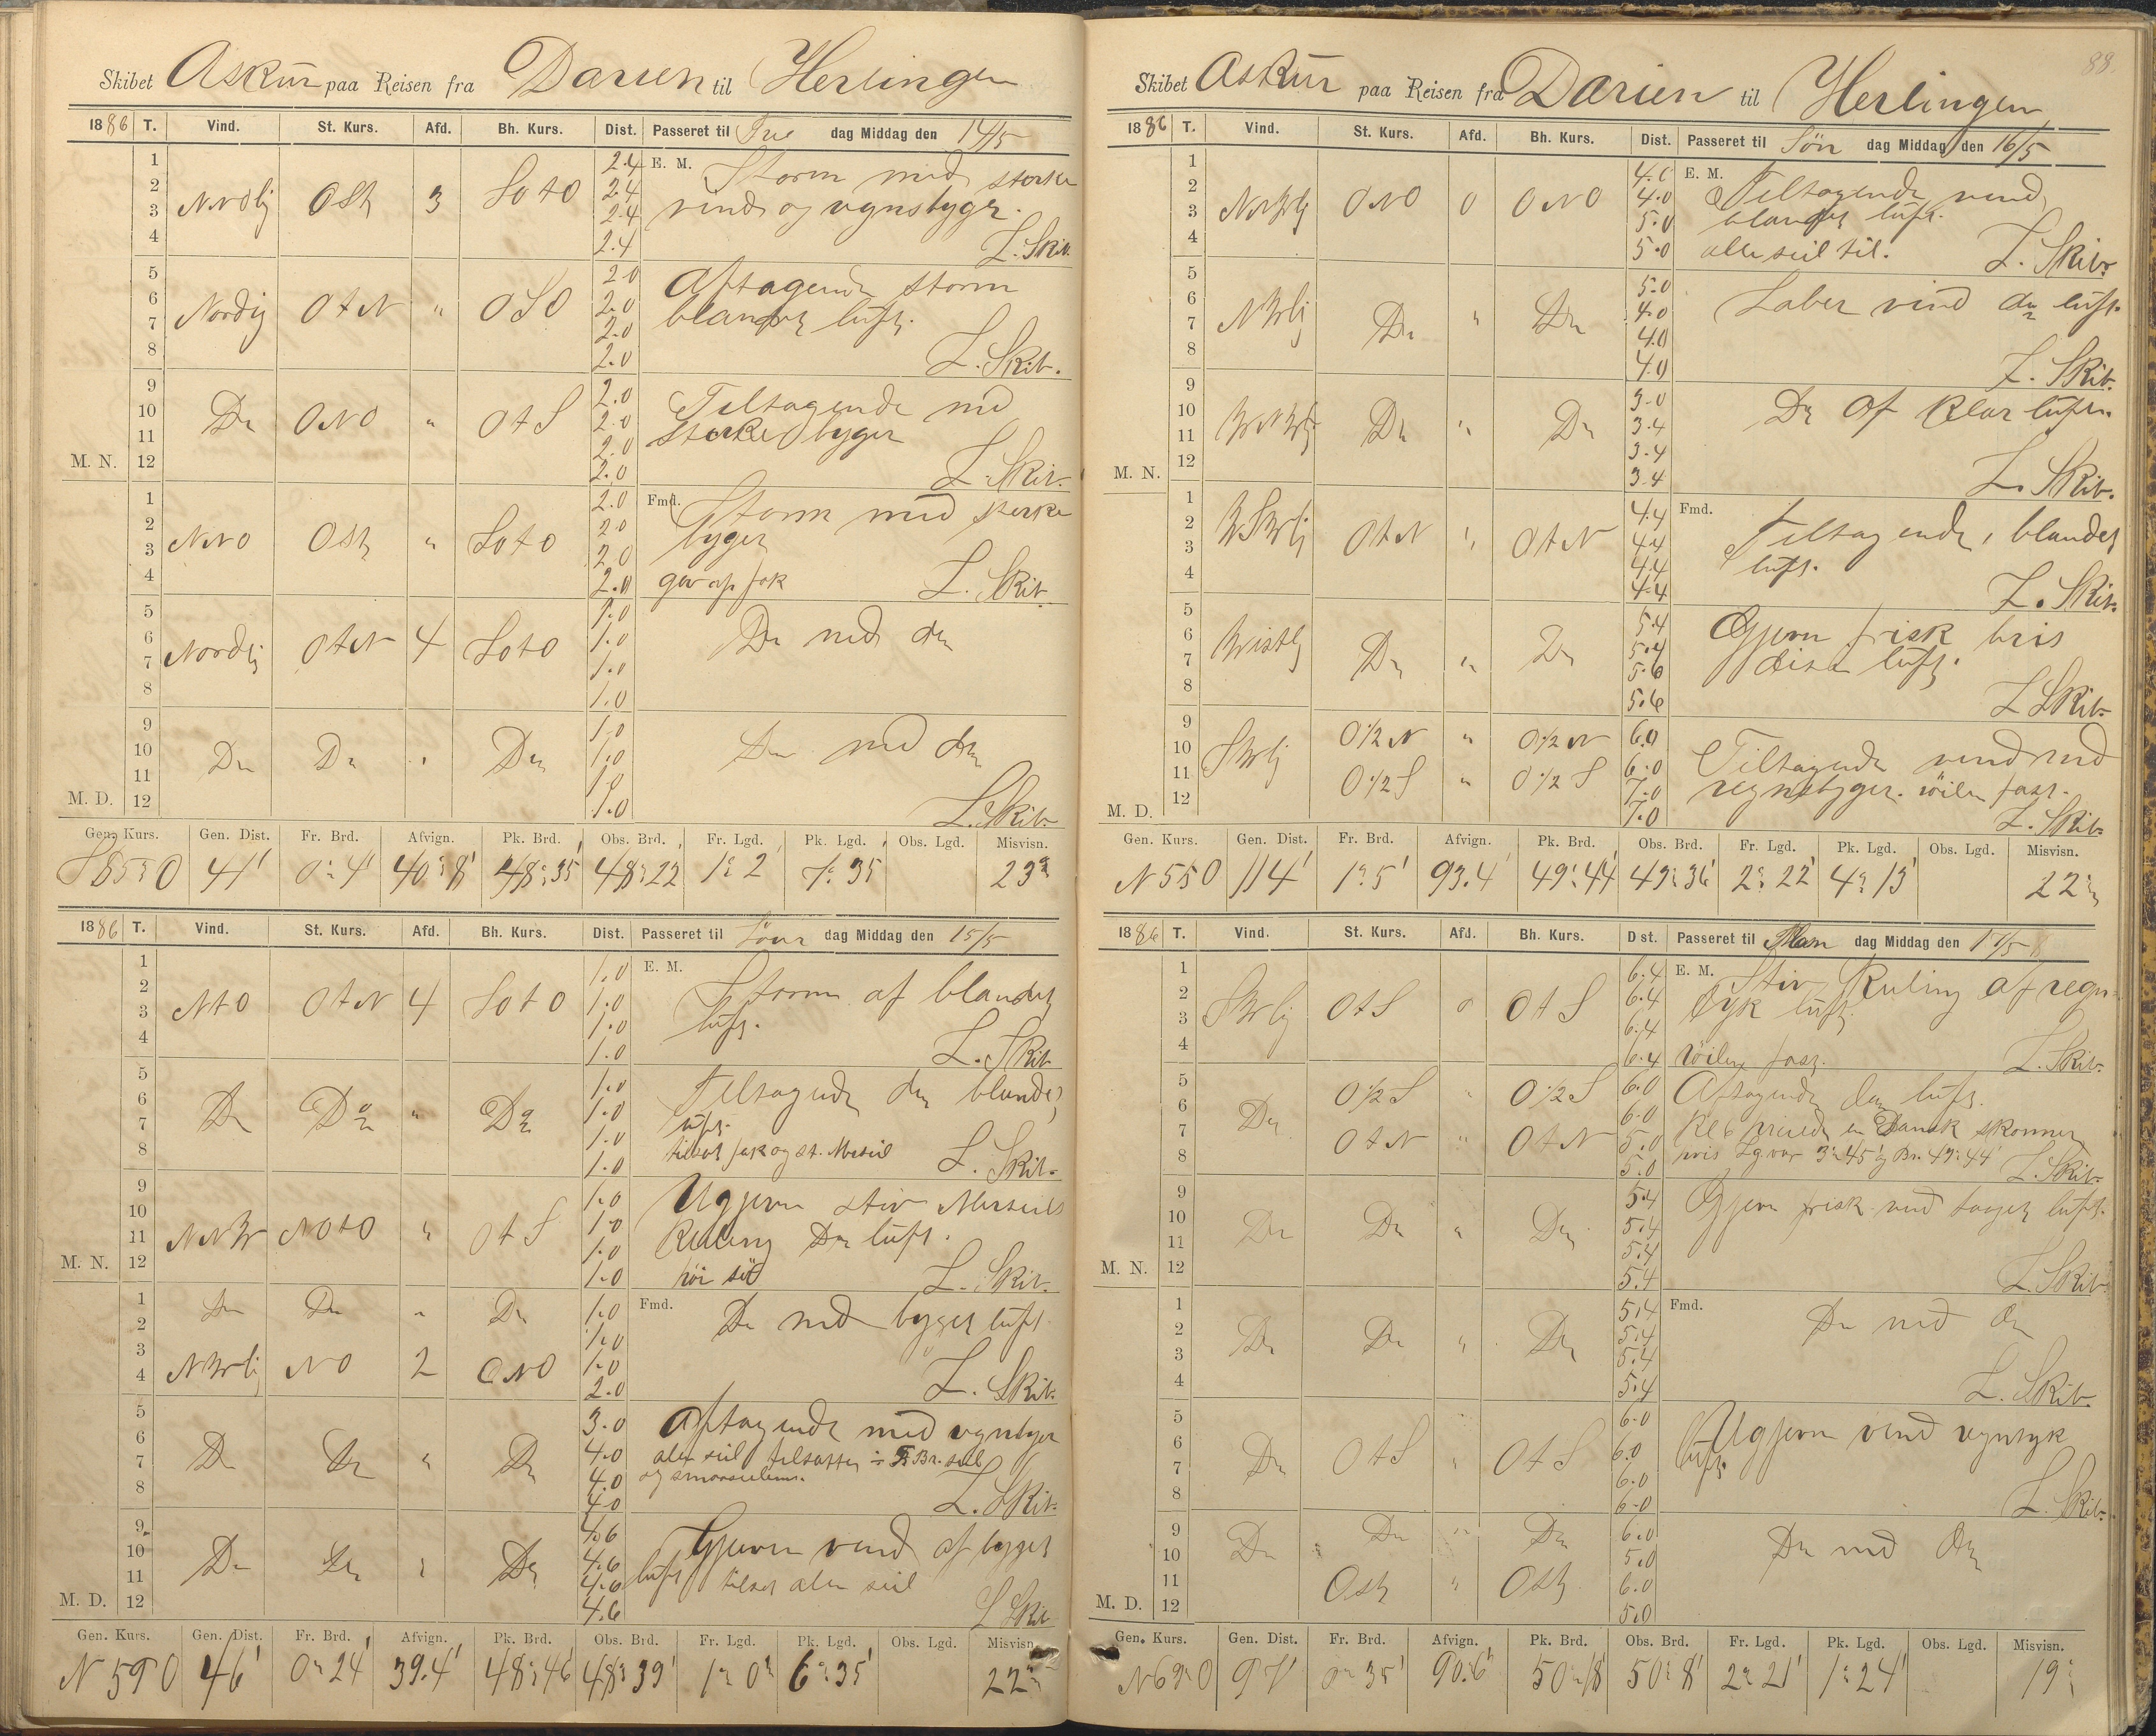 Skibet Askur paa Reisen fra Darien til Herlingen
1886 T. Vind. St. Kurs. Afd. Bh. Kurs. Dist. Passeret til Fre dag Middag den 14/5
1 2.4 E. M. Storm med sterke
2 Nordlig Ost 3 SOtO 2.4 vind og regnbyger.
3 2.4
4 2.4 L. Skib.
5 2.0 Aftagende storm
6 Nordlig OtN " OSO 2.0 blandet luft.
7 2.0
8 2.0 L. Skib.
9 2.0 Tiltagende med
10 Do ONO " OtS 2.0 sterke byger
11 2.0
M. N. 12 2.0 L. Skib.
1 2.0 Fmd. Storm med sterke
2 NNO Ost " SOtO 2.0 byger
3 2.0
4 2.0 L. Skib.
5 1.0 Do med do
6 Nordlig OtN 4 SOtO 1.0
7 1.0
8 1.0
9 1.0 Do med do
10 Do Do " Do 1.0
11 1.0
M. D. 12 1.0 L. Skib.
Gen. Kurs. Gen. Dist. Fr. Brd. Afvign. Pk. Brd. Obs. Brd. Fr. Lgd. Pk. Lgd. Obs. Lgd. Misvisn.
S 85° O 41' 0° 4' 40° 8' 48° 35' 48° 22' 1° 2' 7° 35' 23°
1886 T. Vind. St. Kurs. Afd. Bh. Kurs. Dist. Passeret til Löver dag Middag den 15/5
1 1.0 E. M. Storm af blandet
2 NtO OtN 4 SOtO 1.0 luft.
3 1.0
4 1.0 L. Skib
5 1.0 Tiltagende do blandet
6 Do Do " Do 1.0 luft.
7 1.0
8 1.0 L. Skib.
9 1.0 Ugjevn stiv Merseils
10 NNW NOtO " OtS 1.0 Kuling Do luft.
11 1.0
M. N. 12 1.0 höi sö L. Skib.
1 Do Do " Do 1.0 Fmd. Do med byget luft.
2 1.0
3 NWlig NO 2 ONO 1.0
4 2.0 L. Skib.
5 3.0 Aftagende med regnbyger
6 Do Do " Do 4.0 alle seil tilsatte ÷ Br. seil
7 4.0
8 4.0 L. Skib.
9 4.6 Gjevn vind af byget
10 Do Do " Do 4.6 luft
11 4.6 tilsat alle seil
M. D. 12 4.6 L Skib
Gen. Kurs. Gen. Dist. Fr. Brd. Afvign. Pk. Brd. Obs. Brd. Fr. Lgd. Pk. Lgd. Obs. Lgd. Misvisn.
N 59 O 46' 0° 24' 39.4' 48° 46' 48° 39' 1° 0' 6° 35' 22°
88
Skibet Askur paa Reisen fra Darien til Herlingen
1886 T. Vind. St. Kurs. Afd. Bh. Kurs. Dist. Passeret til Sön dag Middag den 16/5
1 4.0 E. M. Tiltagende vind
2 NNWlig ONO 0 ONO 4.0 blandet luft.
3 5.0
4 5.0 alle seil til. L. Skib.
5 5.0 Laber vind do luft.
6 NWlig Do " Do 4.0
7 4.0
8 4.0 L. Skib.
9 3.0 Do af klar luft.
10 WNWlig Do " Do 3.4
11 3.4
M. N. 12 3.4 L. Skib.
1 4.4 Fmd. Tiltagende, blandet
2 WSWlig OtN " OtN 4.4 luft.
3 4.4
4 4.4 L. Skib.
5 5.4 Gjevn frisk bris
6 Westlig Do " Do 5.4 luft.
7 5.6
8 5.6 L Skib.
9 SWlig O½N " O½N 6.0 Tiltagende vind med
10 6.0 regnbyger. röilen fast.
11 O½S " O½S 7.0
M. D. 12 7.0 L. Skib.
Gen. Kurs. Gen. Dist. Fr. Brd. Afvign. Pk. Brd. Obs. Brd. Fr. Lgd. Pk. Lgd. Obs. Lgd. Misvisn.
N 55 O 114' 1° 5' 93.4' 49° 44' 49° 36' 2° 22' 4° 13' 22°
1886 T. Vind. St. Kurs. Afd. Bh. Kurs. Dist. Passeret til Man dag Middag den 17/5
1 6.4 E. M. Stiv Kuling af regn
2 SWlig OtS 0 OtS 6.4 tyk luft
3 6.4
4 6.4 röilen fast. L. Skib.
5 O½S " O½S 6.0 Aftagende do luft.
6 Do 6.0 Kl 6 Dansk skonner
7 OtN " OtN 5.0 Lg var 3° 45' og Br. 49° 44'
8 5.0 L. Skib.
9 5.4 Gjevn frisk vind taaget luft.
10 Do Do " Do 5.4
11 5.4
M. N. 12 5.4 L. Skib.
1 5.4 Fmd. Do med do
2 Do Do " Do 5.4
3 5.4
4 5.4 L. Skib.
5 6.0 Ugjevn vind regntyk
6 Do OtS " OtS 6.0 luft.
7 6.0
8 6.0 L. Skib.
9 Do Do " Do 6.0 Do med do
10 5.0
11 Ost " Ost 6.0
M. D. 12 5.0
Gen. Kurs. Gen. Dist. Fr. Brd. Afvign. Pk. Brd. Obs. Brd. Fr. Lgd. Pk. Lgd. Obs. Lgd. Misvisn.
N 69° O 97' 0° 35' 90.6' 50° 18' 50° 8' 2° 21' 1° 24' 19°